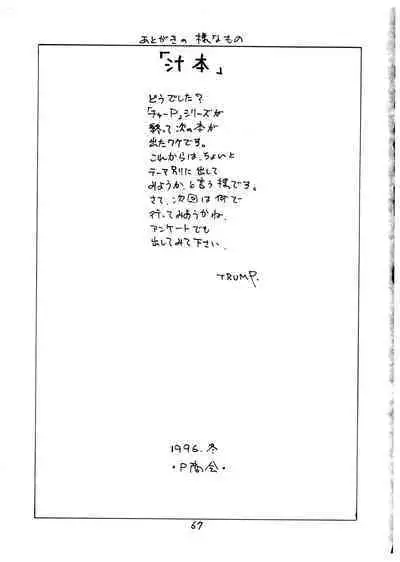 あとがきの様なもの
「汁本」
どうでした?
「チャーP」シリーズが
終って次の本が
出たワケです。
これからは、ちょいと
テーマ別に出して
みようか、と言う様です。
さて、次回は何で
行ってみようかね、
アンケートでも
出してみて下さい。
TRUMP.
1996.冬
・P商会・
67